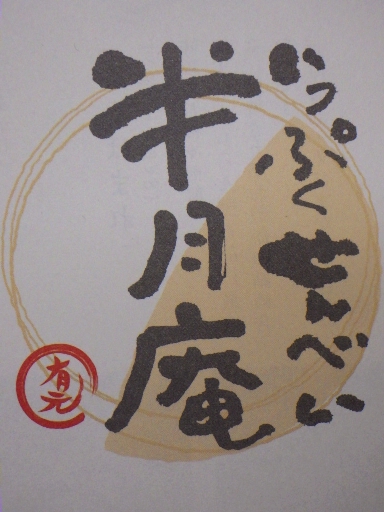 いっぷくせんべい
半月庵
有元